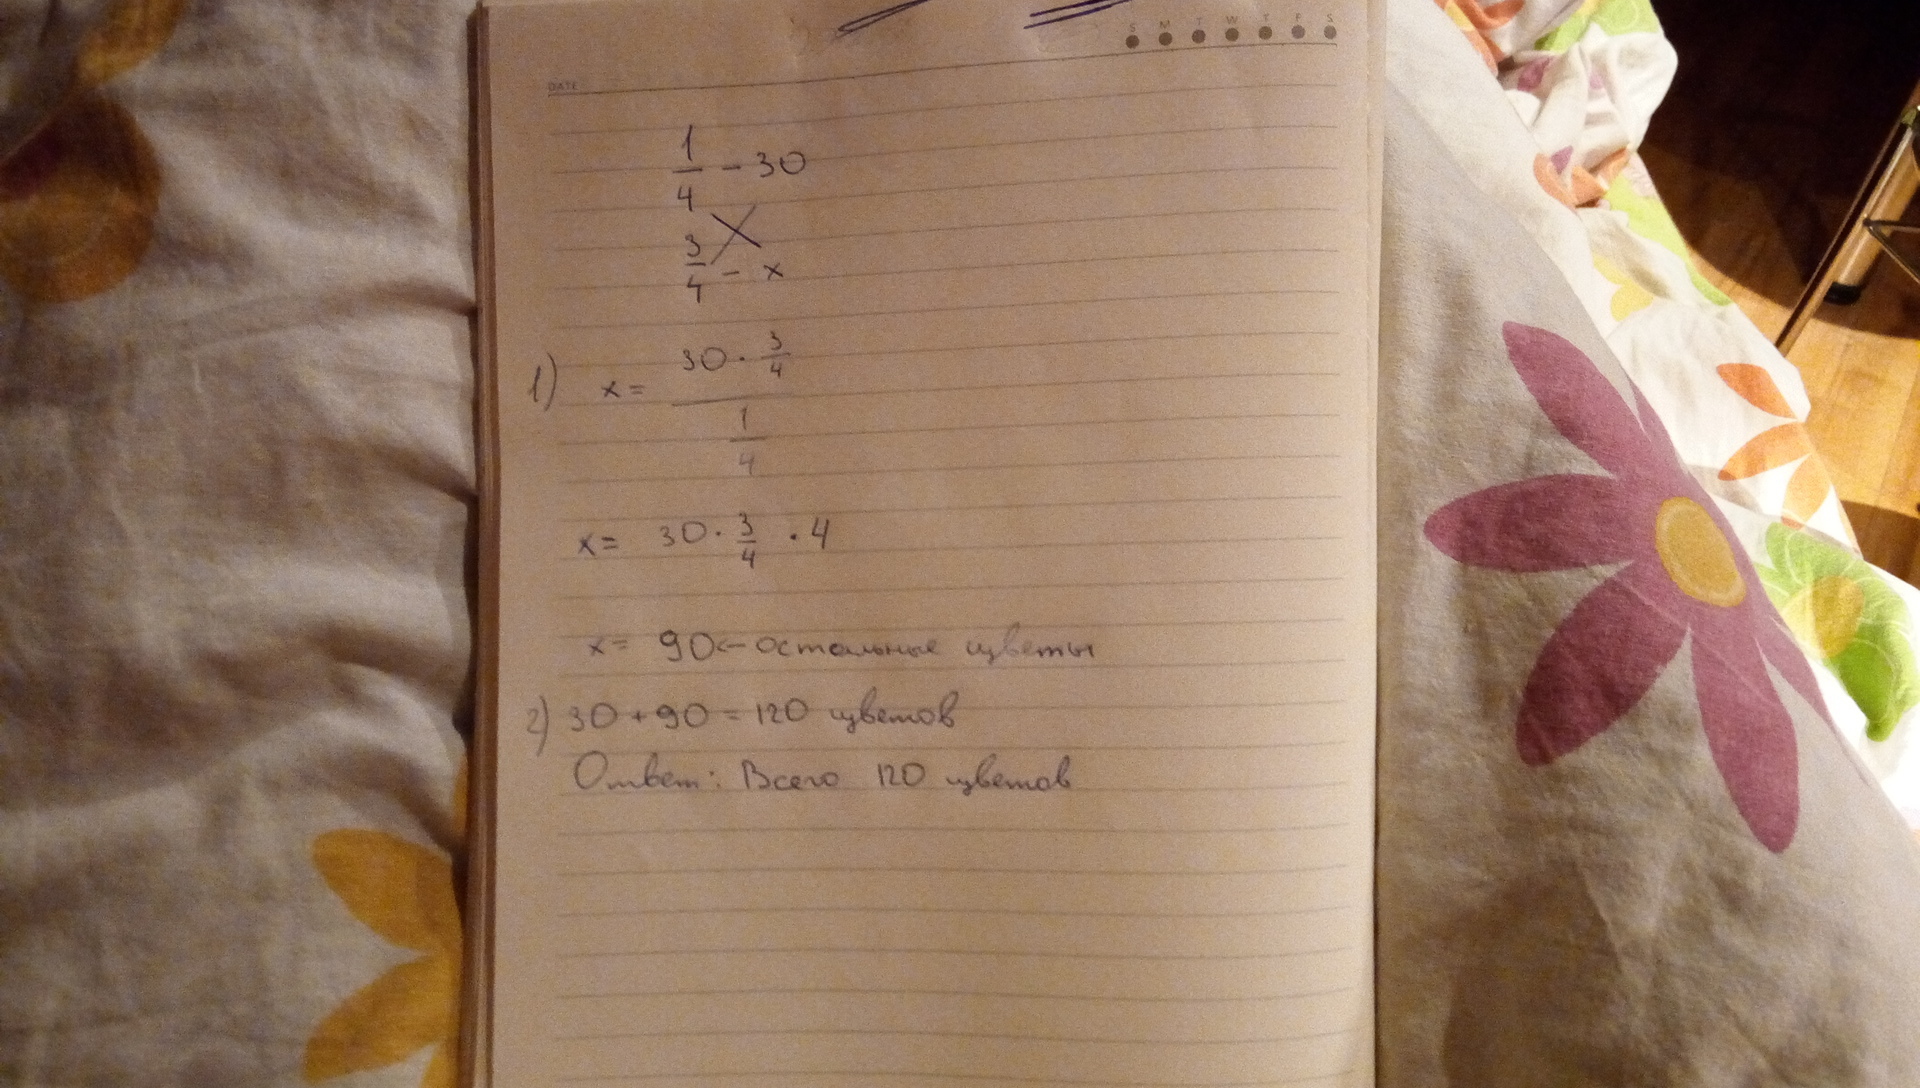 S M T W T F S
DATE
1/4 - 30
3/4 - x
1) x = (30 · 3/4) / (1/4)
x = 30 · 3/4 · 4
x = 90 <- остальные цветы
2) 30 + 90 = 120 цветов
Ответ: Всего 120 цветов